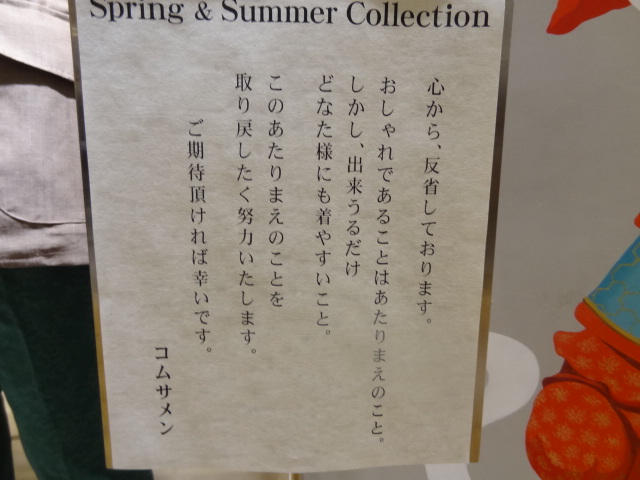 Spring & Summer Collection
心から、反省しております。
おしゃれであることはあたりまえのこと。
しかし、出来うるだけ
どなた様にも着やすいこと。
このあたりまえのことを
取り戻したく努力いたします。
ご期待頂ければ幸いです。
コムサメン